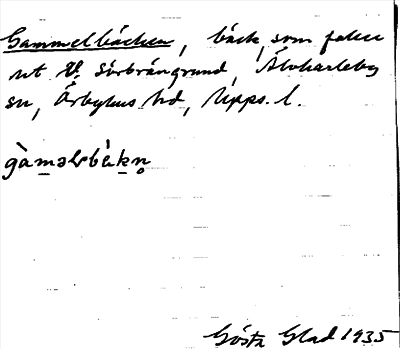 Gammelbäcken, bäck, som faller
ut V. Sörbrångrund, Älvkarleby
sn, Örbyhus hd, Upps. l.
gàmǝlbèkn̥
Gösta Glad 1935